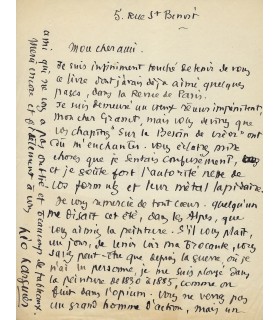 5, rue St Benoit
Mon cher ami,
Je suis infiniment touché de tenir de vous
ce livre dont j'avais déjà aimé quelques
pages, dans la Revue de Paris.
Je suis demeuré un vieux rêveur impénitent,
mon cher Granet, mais vous devinez que
vos chapitres sur le Besoin de
ont pu m'enchanter. Vous éclairez mille
choses que je sentais confusément,
et je goûte fort l'autorité nette de
vos formules et leur métal lapidaire.
Je vous remercie de tout cœur. Quelqu'un
me disait cet été, dans les Alpes, que
vous aimiez la peinture. S'il vous plaît,
un jour, de venir voir ma brocante, vous
savez peut-être que depuis la guerre, où je
n'ai vu personne, je me suis plongé dans
la peinture de 1830 à 1885, comme on
fuit dans l'opium. Vous ne verrez pas
un grand homme d'action, mais un
ami qui ne vous a pas oublié et beaucoup de tableaux.
Merci encore et fidèlement à vous
Léo Larguier